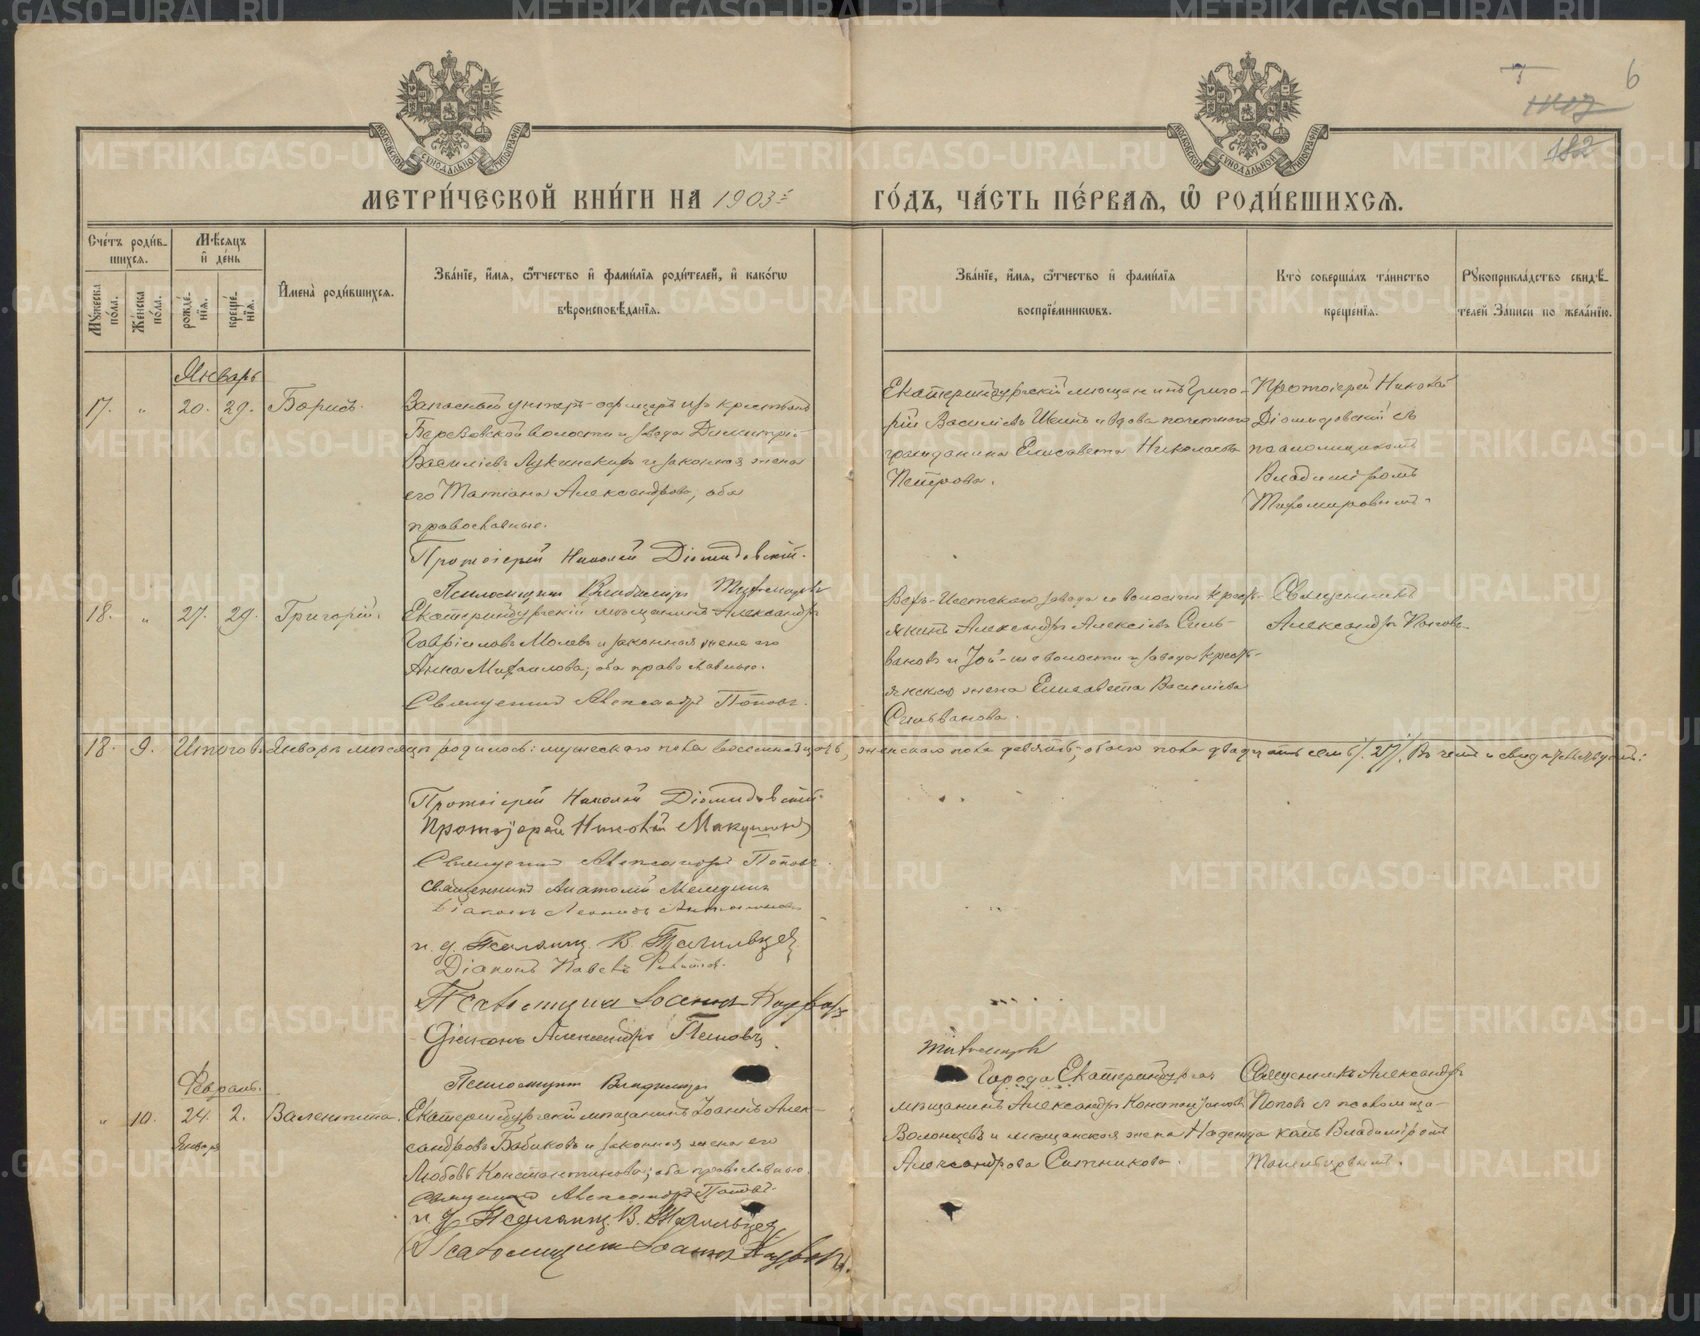 6
182
МОСКОВСКОЙ СѴНОДАЛЬНОЙ ТИПОГРАФІИ
МОСКОВСКОЙ СѴНОДАЛЬНОЙ ТИПОГРАФІИ
МЕТРИ́ЧЕСКОЙ КНИ́ГИ НА 1903й ГО́ДЪ, ЧА́СТЬ ПЕ́РВАѦ, Ѡ҆ РОДИ́ВШИХСѦ.
Сче́тъ роди́в-
шихся.
Мꙋ́жеска по́ла.
Же́нска по́ла.
Мѣ́сяцъ
и҆ де́нь
рожде́-
нїя.
креще́-
нїя.
И҆мена̀ роди́вшихся.
Зва́нїе, и҆́мя, ѻ҆́тчество и҆ фами́лїя роди́телей, и҆ како́гѡ
вѣроисповѣ́данїя.
Зва́нїе, и҆́мя, ѻ҆́тчество и҆ фами́лїя
воспрїе́мникѡвъ.
Кто̀ соверша́лъ та́инство
креще́нїя.
Рꙋкоприкла́дство свидѣ́-
телей За́писи по жела́нїю.
Январь
17. „ 20. 29. Борисъ.
Запасный унтеръ-офицеръ изъ крестьянъ
Березовской волости и завода Димитрій
Васильевъ Лукинскихъ и законная жена
его Татіана Александрова, оба
православные.
Протоіерей Николай Діомидовскій.
Псаломщикъ Владимиръ Тихомировъ
Екатеринбургскій мѣщанинъ Григо-
рій Васильевъ Шкинъ и вдова почетнаго
гражданина Елисавета Николаева
Петрова.
Протоіерей Николай
Діомидовскій съ
псаломщикомъ
Владиміромъ
Тихомировымъ.
18. „ 27. 29. Григорій.
Екатеринбургскій мѣщанинъ Александръ
Гавріиловъ Молевъ и законная жена его
Анна Михаилова, оба православные.
Священникъ Александръ Поповъ.
Верх-Исетскаго завода и волости крестья-
янинъ Александръ Алексѣевъ Силь-
вановъ и той-же волости и завода кресть-
янская жена Елисавета Васильева
Сильванова.
Священникъ
Александръ Поповъ.
18. 9. Итого въ Январѣ мѣсяцѣ родилось: мужескаго пола восемнадцать, женскаго пола девять, обоего пола двадцать семь /27/. Въ чемъ и свидѣтельствуемъ:
Протоіерей Николай Діомидовскій
Протоіерей Николай Макушинъ
Священникъ Александръ Поповъ.
Священникъ Анатолій Меледин
Діаконъ Леонидъ
и. д. Псаломщ. В. Тагильцев
Діаконъ Павелъ
Псаломщикъ Іоаннъ
Діаконъ Александръ Поповъ
Псаломщикъ Владимиръ
Тихомировъ
Февраль.
„ 10. 24. 2. Валентина.
Января
Екатеринбургскій мѣщанинъ Іоаннъ Алек-
сандровъ Бабиковъ и законная жена его
Любовь Константинова; оба православные.
Священникъ Александръ Поповъ.
и. д. Псаломщ. В. Тагильцев
Псаломщикъ Іоаннъ
Города Екатеринбурга
мѣщанинъ Александръ Константиновъ
Волонцевъ и мѣщанская жена Надежда
Александрова Ситникова.
Священникъ Александръ
Поповъ съ псаломщи-
комъ Владиміромъ